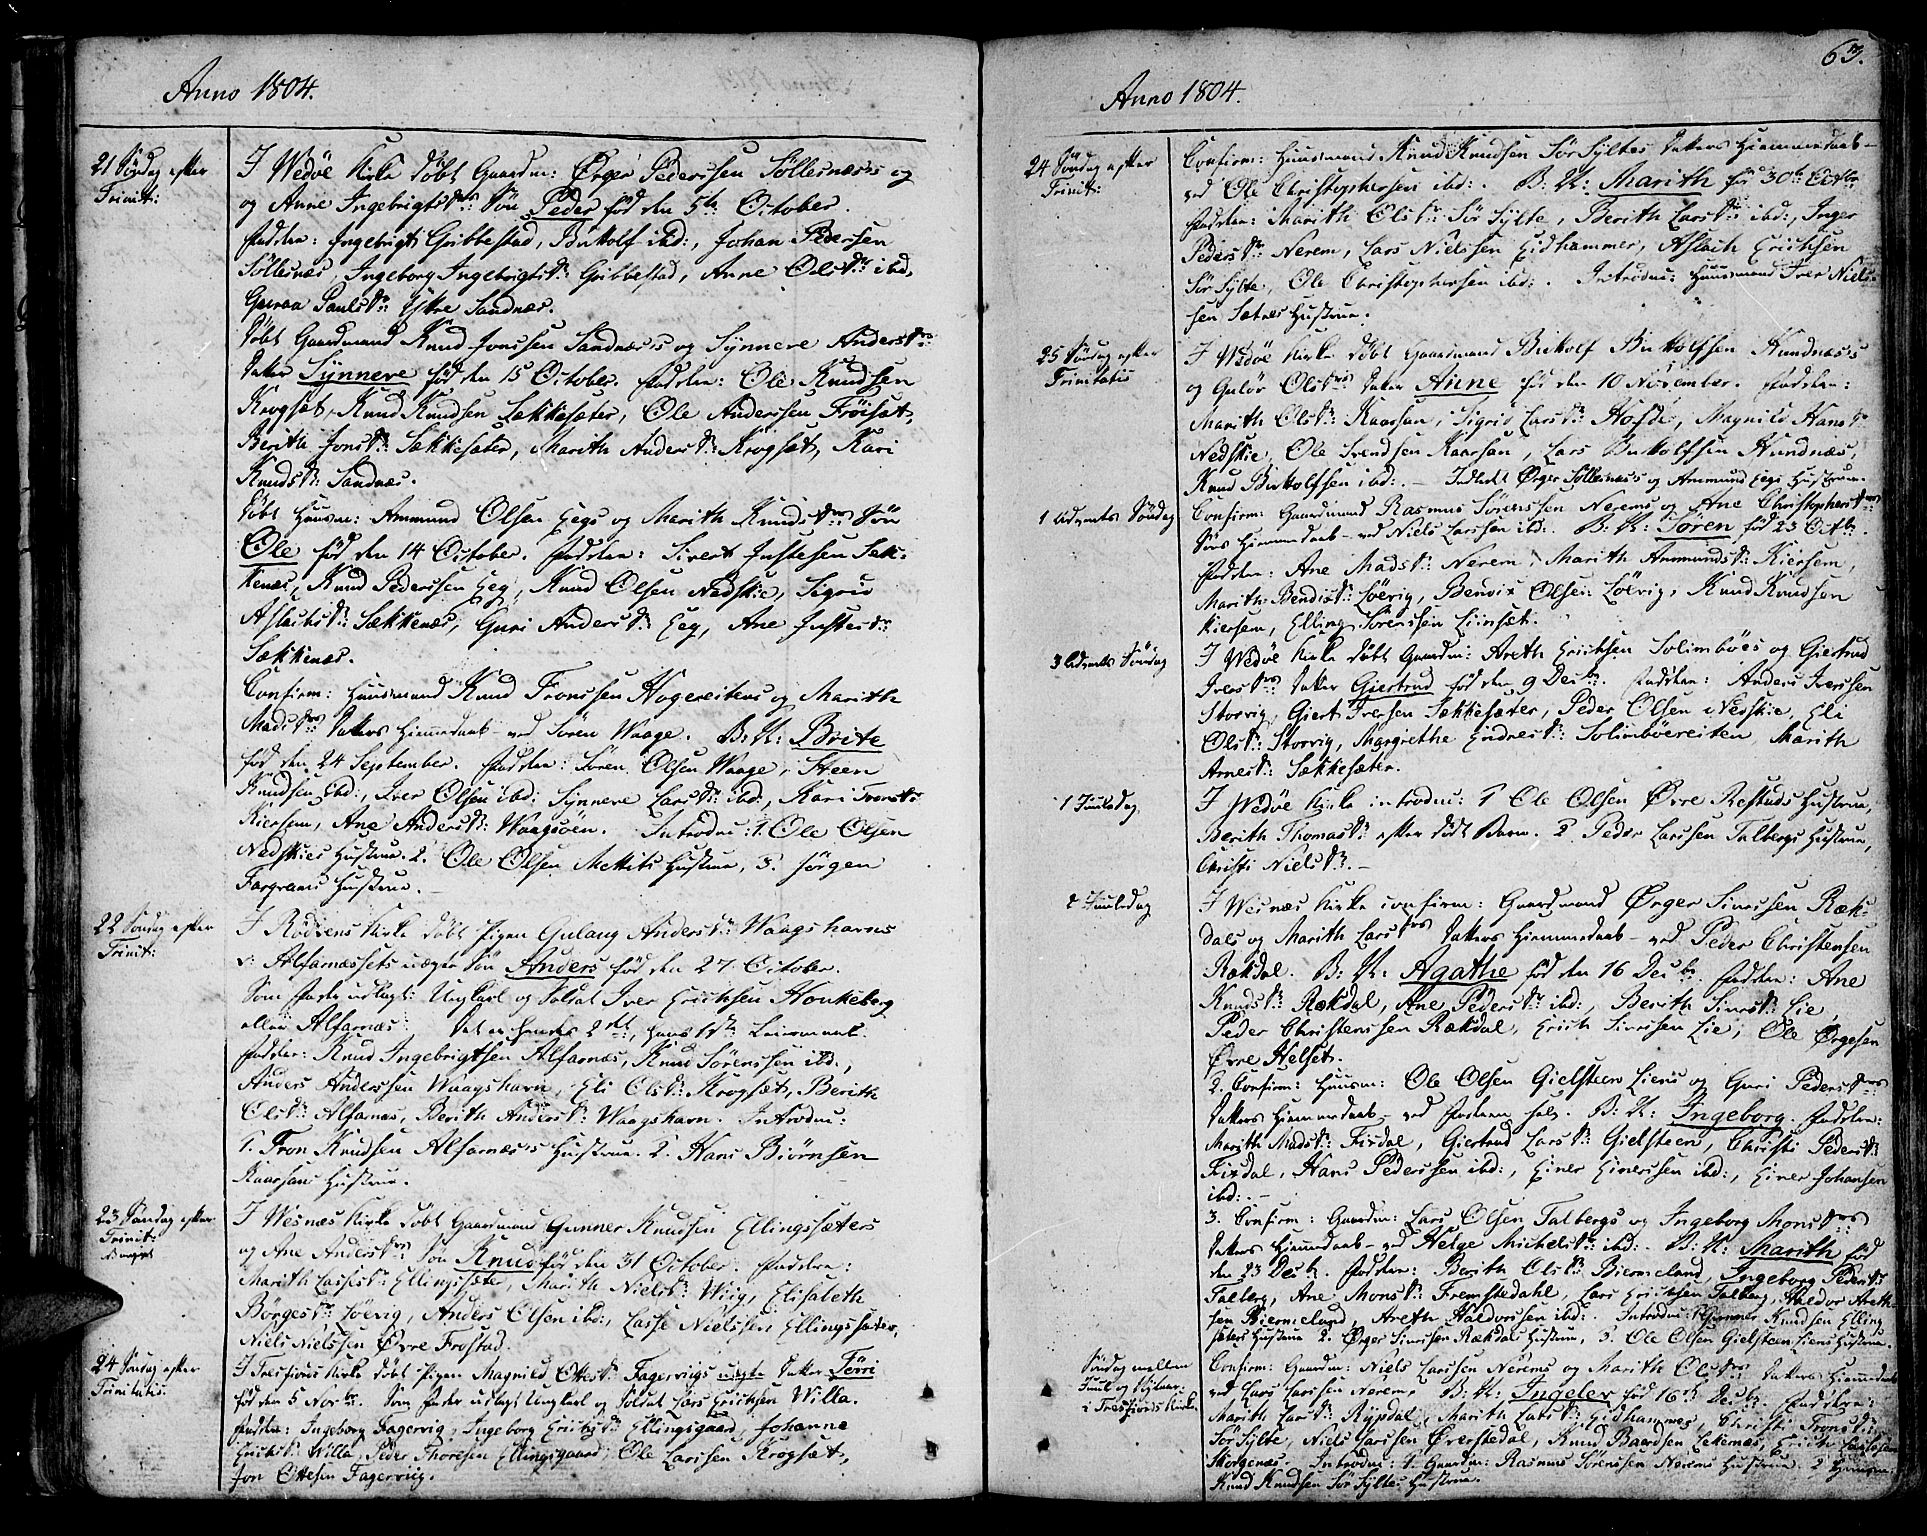 63.
Anno 1804.
21 Søndag efter
Trinit:
I Wedøe Kirke døbt Gaardm: Ørger Pederssen Søllesnæss og
og Anne Ingebrigtsdrs Søn Peder fød den 5te October.
Fadder: Ingebrigt Gribbestad, Botolf ibd:, Johan Pedersen
Søllesnæs, Ingeborg Ingebrigtsdr: Gribbestad, Anne Olsdr: ibd,
Paulsdr: Ytre Sandnæs.
Døbt Gaardmand Knud Jonssen Sandnæss og Synnere Andersdrs
Datter Synnere fød den 15 October. Fadder: Ole Knudsen
Krogsæt, Knud Knudsen Sækkesæter, Ole Anderssen Frøisæt,
Berith Jonsdr: Sækkesæter, Marith Andersdr: Krogsæt, Kari
Knudsdr: Sandnæs.
Døbt Huusm: Ammund Olsen Eegs og Marith Knudsdrs Søn
Ole fød den 14 October. Fadder: Sivert Justesen Sæk-
kenæs, Knud Pederssen Eeg, Knud Olsen Nedskie, Sigrid
Aslachsdr: Sækkenæs, Guri Andersdr: Eeg, Ane Justesdr:
Sækkenæs.
Confirm: Huusmand Knud Tronssen Hogereitens og Marith
Madsdrs Datters Hiemmedaab ved Søren Waage. B: N: Brite
fød den 24 September. Fadder: Søren Olsen Waage, Steen
Knudsen ibd:, Iver Olsen ibd: Synnere Larsdr: ibd:, Kari Tronsdr:
Kiersem, Ane Andersdr: Waagsøen. Introdu: 1. Ole Olsen
Nedskies Hustrue. 2. Ole Olsen Mekkits Hustrue, 3. Jørgen
Hustrue.
22 Søndag efter
Trinit:
I Rødvens Kirke døbt Pigen Gulaug Andersdr: Waagshavns
v: Alfarnæssets uægte Søn Anders fød den 27 October.
Som Fader udlagt: Ungkarl og Soldat Iver Erichsen Honkeberg
eller Alfarnæs. Det er hendes 2det, hans 1ste Leiermaal.
Fadder: Knud Ingebrigtsen Alfarnæs, Knud Sørenssen ibd.,
Anders Anderssen Waagshavn, Eli Olsdr: Krogsæt, Berith
Olsdr: Alfarnæs, Berith Andersdr: Waagshavn. Introdu:
1. Tron Knudsen Alfarnæss Hustrue. 2. Hans Biørnsen
Kaarsans Hustrue.
23 Søndag efter
Trinit:
I Wesnæs Kirke døbt Gaardmand Gunner Knudsen Ellingssæters
og Ane Andersdrs Søn Knud fød den 31 October. Fadder:
Marith Lassesdr: Ellingssæter, Marith Nielsdr: Wiig, Elisabeth
Børgesdr: Løevig, Anders Olsen ibd:, Lasse Nielssen Ellingssæter,
Niels Nielssen Øvre Frostad.
24 Søndag efter
Trinitatis
I Tresfiords Kirke døbt Pigen Magnild Ottesdr: Fagervigs uægte Datter Jørri
fød den 5 Novbr. Som Fader udlagt Ungkarl og Soldat Lars Erichsen Willa.
Fadder: Ingeborg Fagervig, Ingeborg Erichsdr: Ellingsgaard, Johanne
Erichsdr: Willa, Peder Thoresen Ellingsgaard, Ole Larssen Krogsæt,
Jon Ottesen Fagerviig.
Anno 1804.
24 Søndag efter
Trinit:
Confirm: Huusmand Knud Knudsen Sør Syltes Datters Hiemmedaab
ved Ole Christophersen ibd:. B: N: Marith fød 30te Octbr
Fadder: Marith Olsdr: Sør Sylte, Berith Larsdr: ibd:, Inger
Pedersdr: Nerem, Lars Nielssen Eidhammer, Aslach Erichsen
Sør Sylte, Ole Christophersen ibd:. Introdu: Huusmand Iver Niels-
sen Sætres Hustrue.
25 Søndag efter
Trinitatis
I Wedøe Kirke døbt Gaardmand Botolf Botolfsen Hundnæss
og Guløe Olsdrs Datter Anne fød den 10 November. Fadder:
Marith Olsdr: Kaarsan, Sigrid Larsdr: Hofde, Magnild Hansdr
Nedskie, Ole Svendsen Kaarsan, Lars Botolfsen Hundnæs,
Knud Botolfsen ibd:. — Indledt Ørger Søllesnæss og Ammund Eegs Hustruer.
1 Advents Søndag
Confirm: Gaardmand Rasmus Sørenssen Nerems og Ane Christophersdrs
Søns Hiemmedaab ved Niels Larssen ibd: B: N: Søren fød 23 Octbr.
Fadder: Ane Madsdr: Nerem, Marith Ammundsdr: Kiersem,
Marith Bendixdr: Løevig, Bendix Olsen Løevig, Knud Knudsen
Kiersem, Elling Sørenssen Liinset.
3 Advents Søndag
I Wedøe Kirke døbt Gaardm: Areth Erichsen Solimbøes og Giertrud
Iversdrs Datter Giertrud fød den 9 Decbr. Fadder: Anders Iverssen
Storvig, Giert Iversen Sækkesæter, Peder Olsen Nedskie, Eli
Olsdr: Storvig, Margrethe Endresdr: Solimbøereiten, Marith
Arnesdr: Sækkesæter.
1 Juuledag
I Wedøe Kirke introdu: 1 Ole Olsen Øvre Restads Hustrue,
Berith Thomasdr: efter dødt Barn. 2. Peder Larssen Talbergs Hustrue,
Christi Nielsdr: —
2 Juuledag
I Wesnæs Kirke confirm: Gaardmand Ørger Sivessen Ræk-
dals og Marith Larsdrs Datters Hiemmedaab ved Peder Christensen
Rækdal. B: N: Agathe fød den 16 Decbr. Fadder: Ane
Knudsdr: Rækdal, Ane Pedersdr: ibd:, Berith Siversdr: Lie,
Peder Christenssen Rækdal, Erich Sivessen Lie, Ole Ørgesen
Øvre Helset.
2. Confirm: Huusm: Ole Olsen Gielsteen Liens og Guri Pedersdrs
Datters Hiemmedaab ved Faderen selv. B: N: Ingeborg. Fadder:
Marith Madsdr: Fixdal, Giertrud Larsdr: Gielsteen, Christi Pedersdr:
Fixdal, Hans Pederssen ibd:, Einer Einerssen ibd:, Einer Johansen
ibd:. —
3. Confirm: Gaardm: Lars Olsen Talbergs og Ingeborg Monsdrs
Datters Hiemmedaab ved Helge Michelsdr: ibd:. B: N: Marith fød
den 23 Decbr. Fadder: Berith Olsdr: Biermeland, Ingeborg Pedersdr
Talberg, Ane Monsdr: Fremstedahl, Lars Erichsen Talberg, Haldor Areth-
sen Biermeland, Areth Haldorssen ibd:. Introdu: 1 Gunner Knudsen Elling-
sæters Hustrue 2. Ørger Sivessen Rækdals Hustrue, 3. Ole Olsen Gielsteen Liens Hustrue.
Søndag mellem
Juul og Nytaar
i Tresfiords Kirke.
Confirm: Gaardm: Niels Larssen Nerems og Marith Olsdrs Datters Hiemmedaab
ved Lars Larssen Nerem. B: N: Ingelev fød 16de Decbr. Fadder:
Marith Larsdr: Rypdal, Marith Larsdr: Eidhammer, Christi Tronsdr:
Sør Sylte, Niels Larssen Øverstedal, Knud Baardsen Lekenæs, Erich Larssen
Skorgenæs. Introdu: 1. Gaardm: Rasmus Sørenssen Nerems Hustrue. 2 Huusm:
Knud Knudsen Sør Syltes Hustrue.